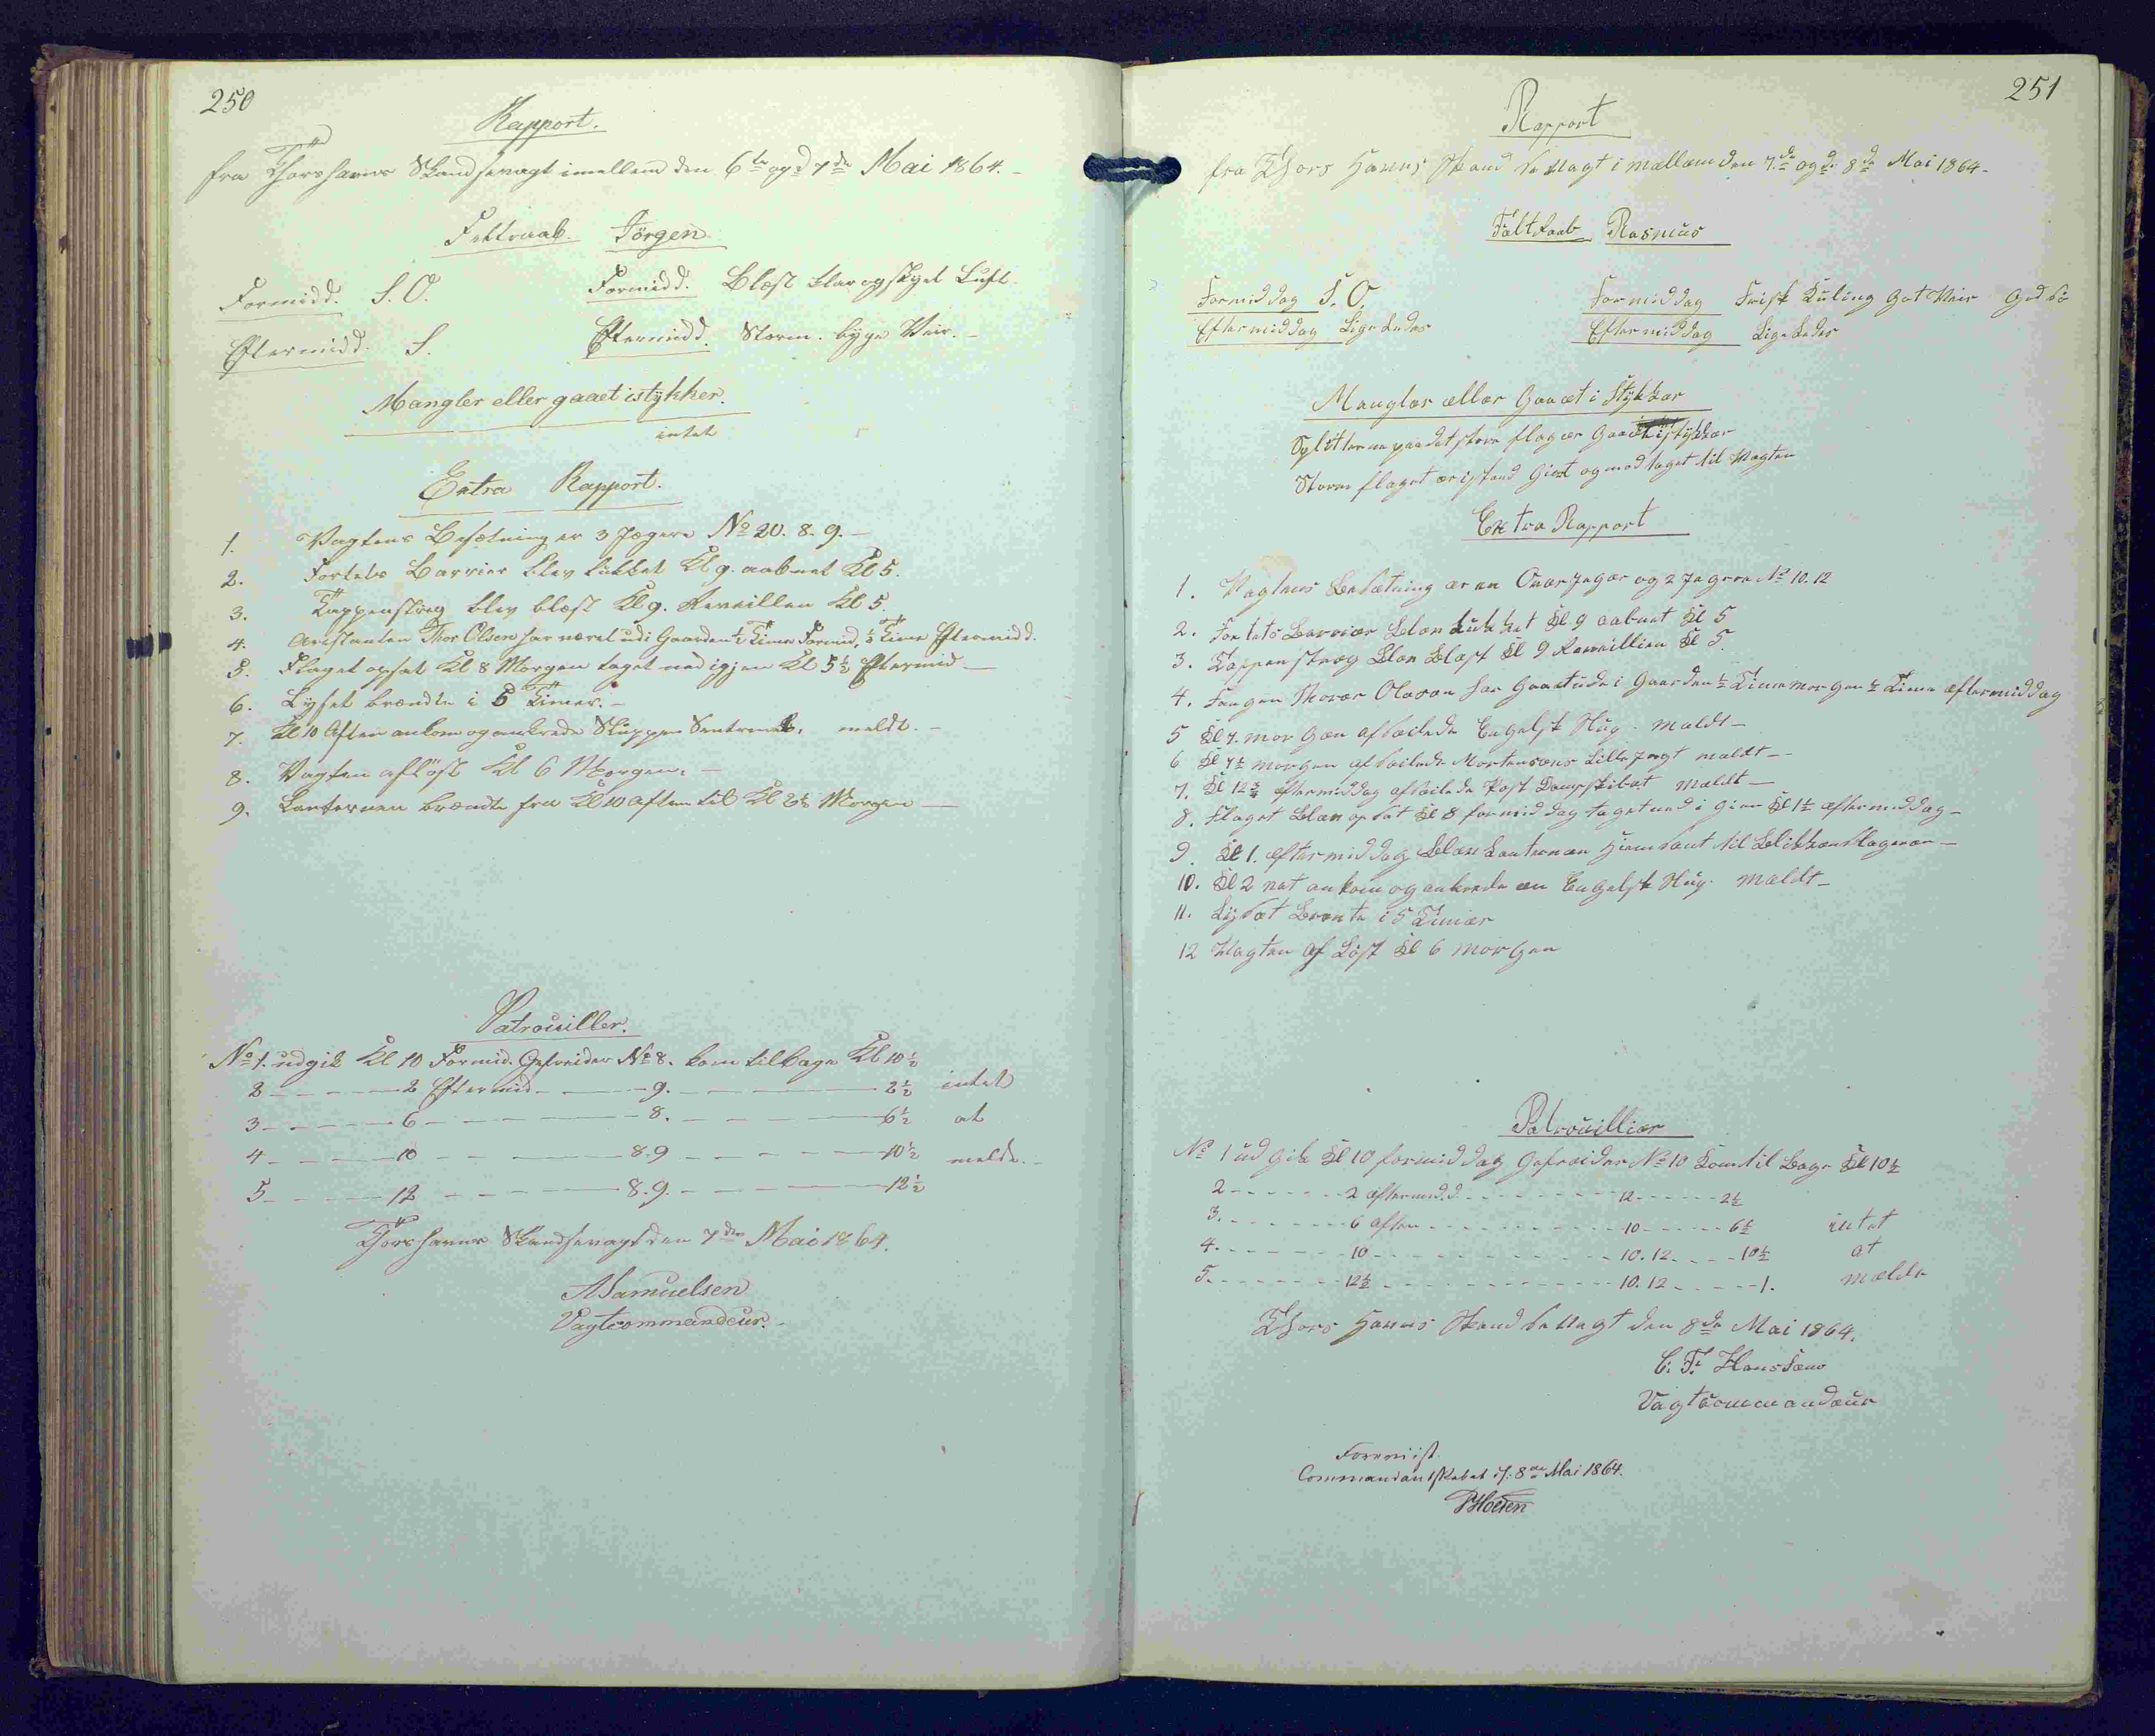 250
Rapport.
fra Thorshavns Skandsevagt imellem den 6te og d 7de Mai 1864. -
Feltraab. Jörgen
Formidd. S.O. Formidd. Blæst klar og skyet Luft.
Eftermidd. S. Eftermidd. Storm. byge Veir. -
Mangler eller gaaet istykker.
intet
Extra Rapport.
1. Vagtens Besætning er 3 Jægere No 20. 8. 9. -
2. Fortets Barrier blev lukket Kl 9. aabnet Kl 5.
3. Tappenstreg blev blæst Kl 9. Reveillen Kl 5.
4. Arestanten Thor Olsen har været udi Gaarden ½ Time Formid, ½ Time Eftermidd.
5. Flaget opsat Kl 8 Morgen taget ned igjen Kl 5½ Eftermid —
6. Lyset brændte i 5 Timer. -
7. Kl 10 Aften ankom og ankrede Sluppen meldt. -
8. Vagten aflöst Kl 6 Morgen. -
9. Lanternen brændte fra Kl 10 Aften til Kl 2½ Morgen —
Patrouiller.
No 1. udgik Kl 10 Formid. Gefreider No 8. kom tilbage Kl 10½
2 — — — 2 Eftermid — — 9. — — — 2½ intet
3 — — — 6 — — — 8. — — — 6½ at
4 — — — 10 — — — 8.9 — — — 10½ melde. -
5 — — — 12 — — — 8.9. — — — 12½
Thorshavns Skandsevagt den 7de Mai 1864.
A Samuelsen
Vagtcommandeur. -
251
Rapport
fra Thors Havns Skand se Vagt i mællæm den 7de og d. 8de Mai 1864 -
Fæltraab Rasmus
Formiddag S.O. Formiddag Frisk Kuling Got Veir God Sö
Eftermiddag Ligeledes Eftermiddag Ligeledes
Manglær ællær Gaaæt i Stykkær
Splitterne paa det store flag ær Gaaæt i stykkær
Storm flaget ær istand Giort og modtaget til Vagten
Extra Rapport
1. Vagtens Besætning ær en Overjæger og 2 Jægere No 10. 12
2. Fortets Barriær blev Lukket Kl 9 aabnet Kl 5
3. Tappenstræg blev Blæst Kl 9 Reveillien Kl 5.
4. Fangen Thorær Olesen har Gaaet ude i Gaarden ½ Time morgen ½ Time æftermiddag
5 Kl 7. morgæn afseilede Engelsk Hug. mældt —
6 Kl 7½ morgen afseilede Mortensens Lille Jagt mældt —
7. Kl 12¾ æftermiddag afseilede Post Dampskibet mældt —
8. Flaget blev opsat Kl 8 formiddag taget ned i Gien Kl 1½ æftermiddag —
9. Kl 1. æftermiddag blev Lanternæn Hjemsent til Blikkenslageren —
10. Kl 2 nat ankom og ankrede en Engelsk Hug. mældt —
11. Lyset Brænte i 5 Timær
12 Vagten Af Löst Kl 6 morgen
Patrouilliær
No 1 ud gik Kl 10 formiddag Gefreider No 10 Kom til Bage Kl 10½
2 - - - - - 2 æftermidd - - - - - 12 - - - - 2½
3. - - - - - 6 aften - - - - - 10 - - - - 6½ intet
4. - - - - - 10 - - - - - 10. 12 - - - - 10½ at
5. - - - - - 12½ - - - - - 10. 12 - - - - 1. mælde
Thors Havns Skand se Vagt den 8de Mai 1864.
C. F. Hanssens
Vagtkommandæur
Foreviist.
Commandantskabet d. 8de Mai 1864.